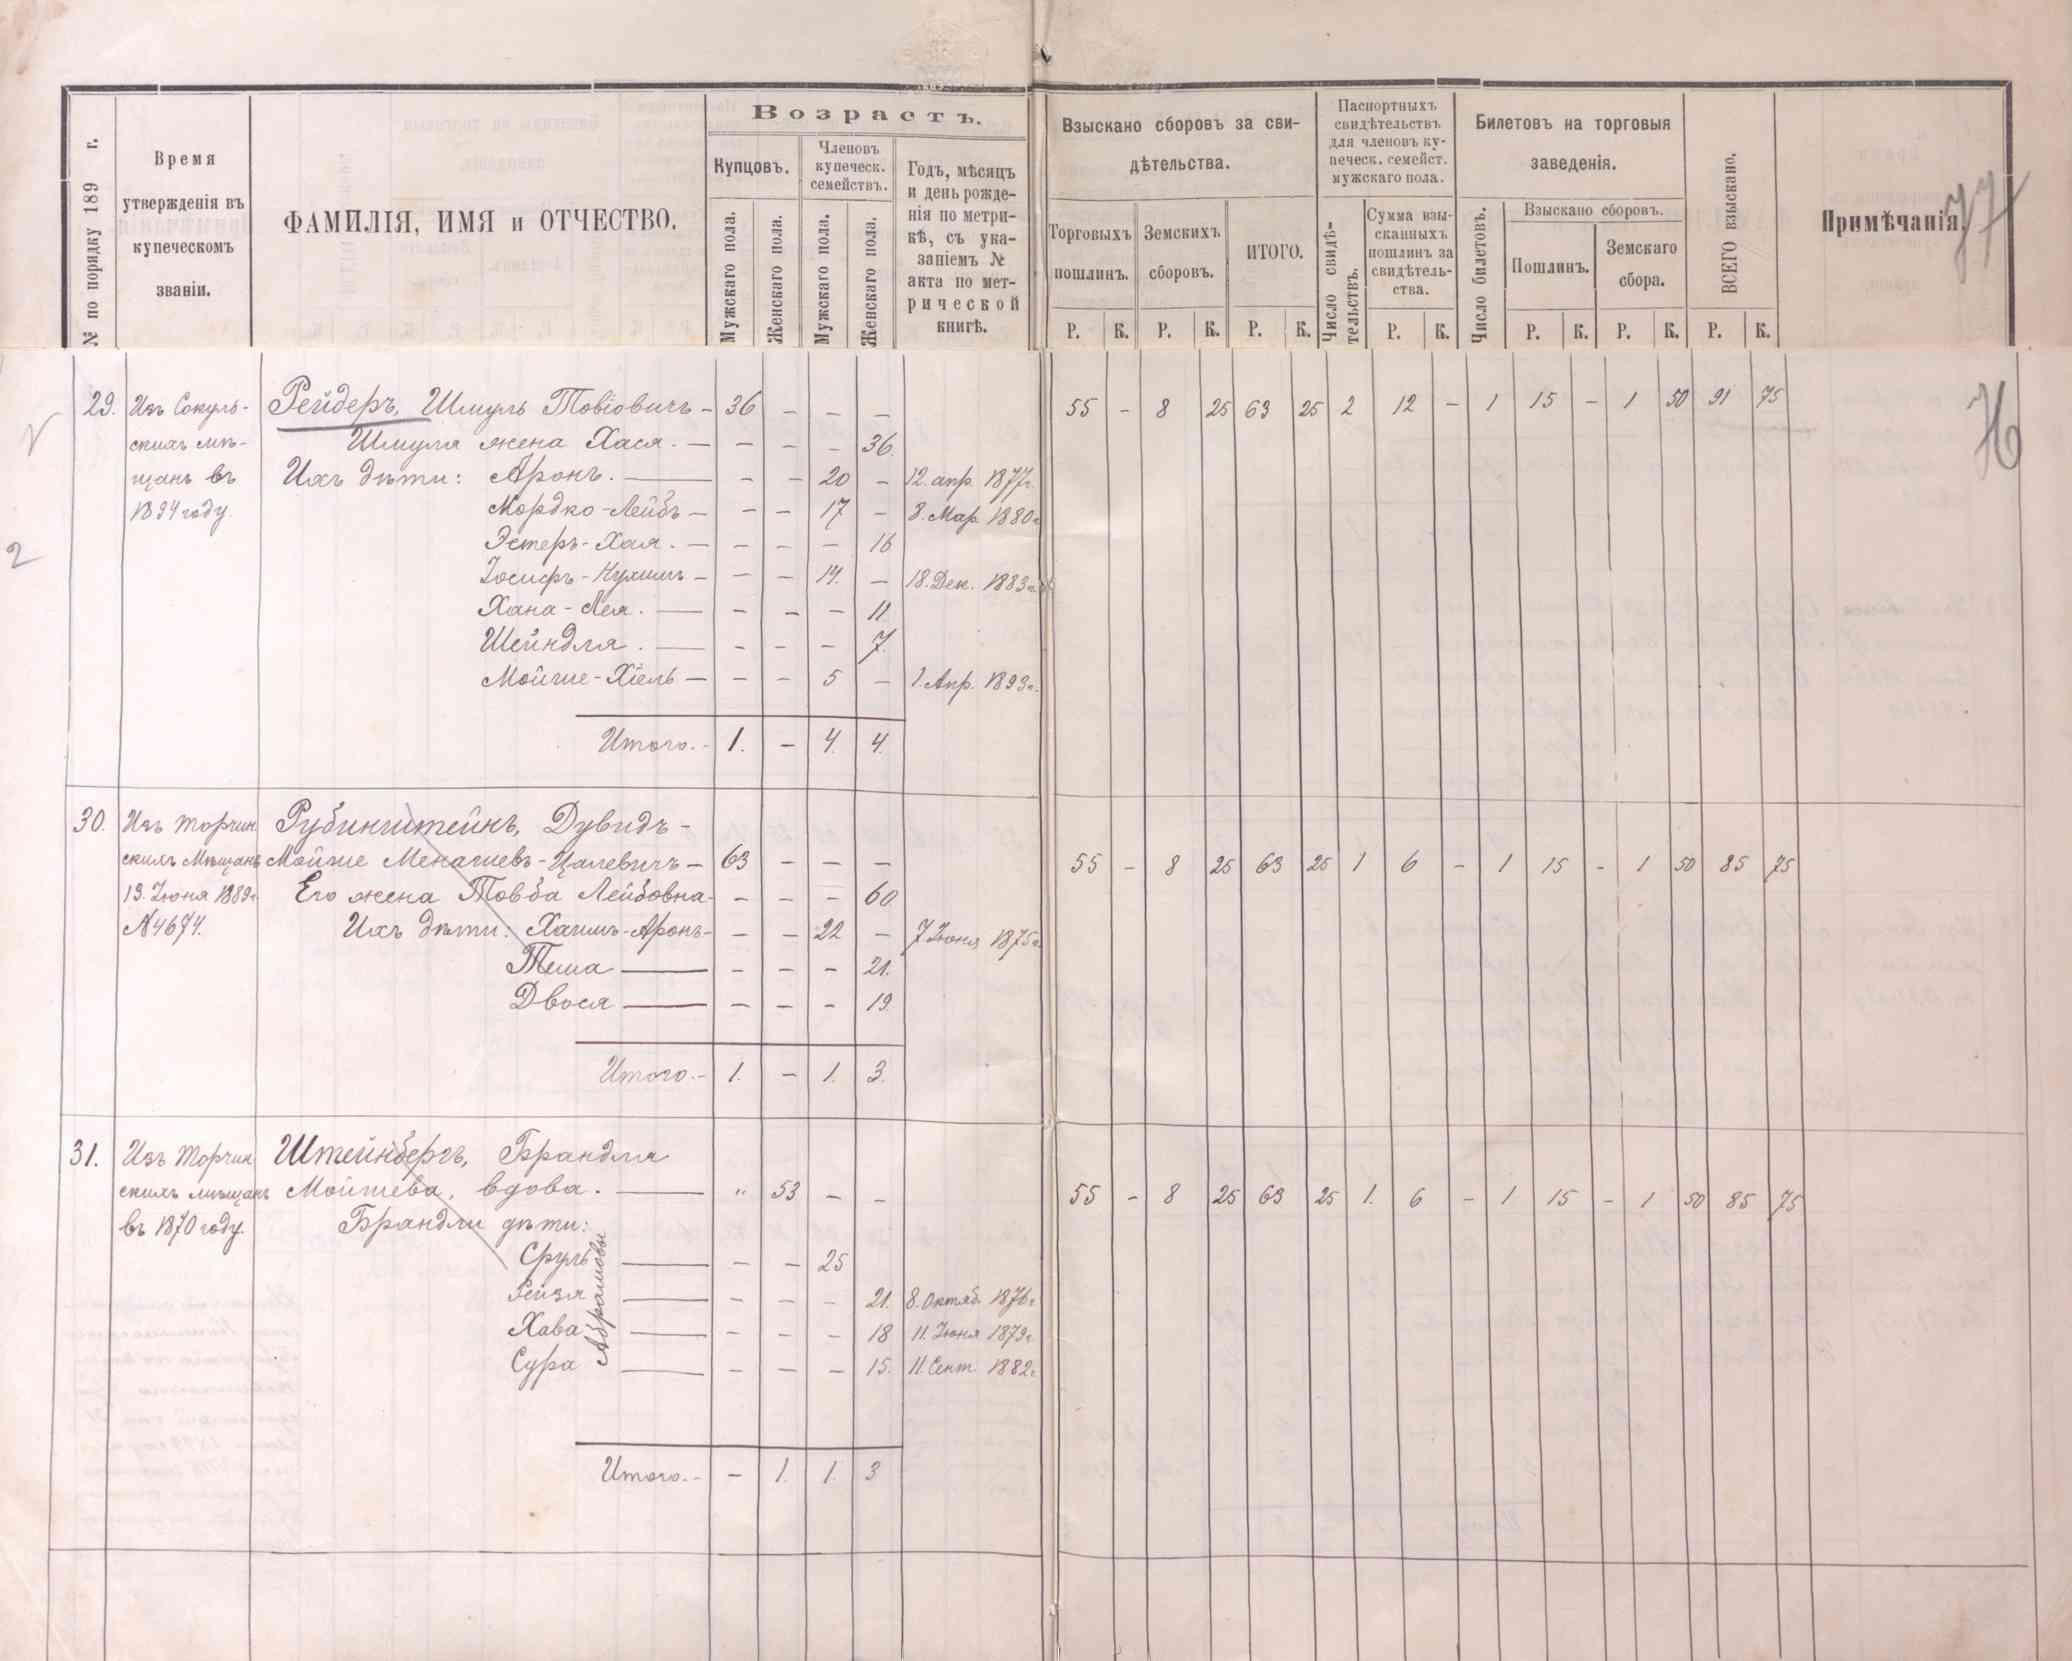 77
№ по порядку 189 г.
Время утвержденія въ купеческомъ званіи.
ФАМИЛІЯ, ИМЯ и ОТЧЕСТВО.
Возрастъ.
Купцовъ.
Мужскаго пола.
Женскаго пола.
Членовъ купеческ. семействъ.
Мужскаго пола.
Женскаго пола.
Годъ, мѣсяцъ и день рожде-
нія по метри-
кѣ, съ ука-
заніемъ №
акта по мет-
рической
книгѣ.
Взыскано сборовъ за сви-
дѣтельства.
Торговыхъ пошлинъ.
Р. К.
Земскихъ сборовъ.
Р. К.
ИТОГО.
Р. К.
Паспортныхъ
свидѣтельствъ
для членовъ ку-
печеск. семейст.
мужскаго пола.
Число свидѣ-
тельствъ.
Сумма взы-
сканныхъ
пошлинъ за
свидѣтель-
ства.
Р. К.
Билетовъ на торговыя
заведенія.
Число билетовъ.
Взыскано сборовъ.
Пошлинъ.
Р. К.
Земскаго сбора.
Р. К.
ВСЕГО взыскано.
Р. К.
Примѣчанія.
29. Изъ Сокуль- Рейдеръ, Шмуль Товіовичъ - 36 - - - 55 - 8 25 63 25 2 12 - 1 15 - 1 50 91 75
скихъ мѣ- Шмуля жена Хася. - - - - 36.
щанъ въ Ихъ дѣти: Аронъ. - - - 20 - 12. апр. 1877г.
1894 году. Мордко-Лейбъ - - - 17 - 8. Мар. 1880г.
2 Эстеръ-Хая. - - - - 16
Іосифъ-Нухимъ - - - 14. - 18. Дек. 1883г.
Хана-Лея. - - - - 11
Шейндля. - - - - 7.
Мойше-Хіель - - - 5 - 1. Апр. 1893г.
Итого. - 1. - 4. 4.
30. Изъ Торчин Рубинштейнъ, Дувидъ-
скихъ Мѣщанъ Мойше Менашевъ-Цалевичъ - 63 - - - 55 - 8 25 63 25 1 6 - 1 15 - 1 50 85 75
19. Іюня 1889г. Его жена Товба Лейбовна - - - - 60
№4674. Ихъ дѣти: Хаимъ-Аронъ - - - 22 - 7 Іюня 1875г.
Тема - - - - 21.
Двося - - - - 19.
Итого. - 1. - 1. 3.
31. Изъ Торчин Штейнбергъ, Брандля
скихъ мѣщанъ Мойшева, вдова. - " 53 - - 55 - 8 25 63 25 1. 6 - 1 15 - 1 50 85 75
въ 1870 году. Брандли дѣти:
Сруль - - - 25
Рейзя - - - - 21. 8. Октяб. 1876г.
Хава - - - - 18 11. Іюня 1879г.
Сура - - - - 15. 11. Сент. 1882г.
Абрамовы
Итого. - - 1. 1. 3